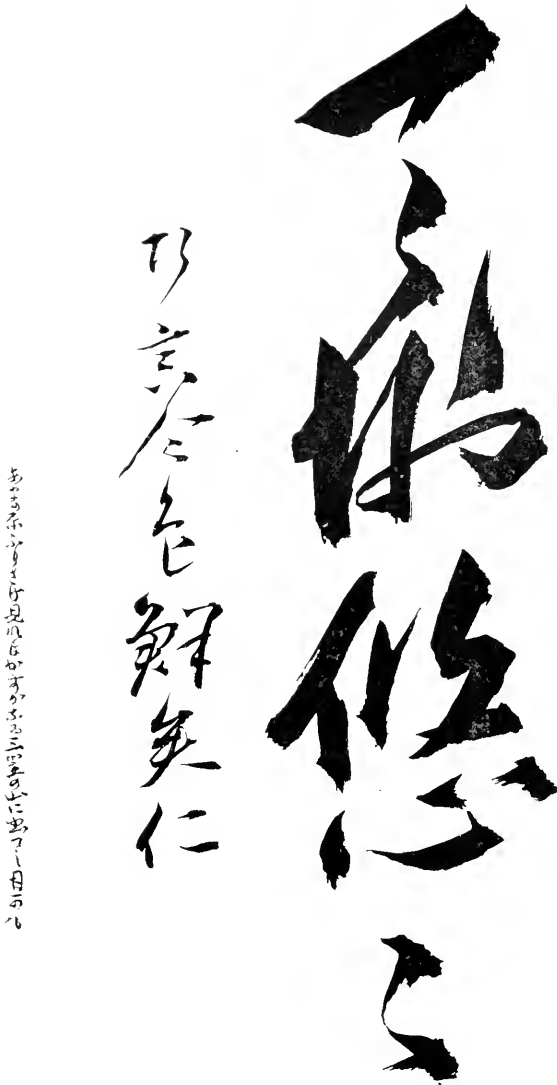 悠々
巧言令色鮮矣仁
あまの原ふりさけ見ればかすがなる三笠の山に出でし月可も